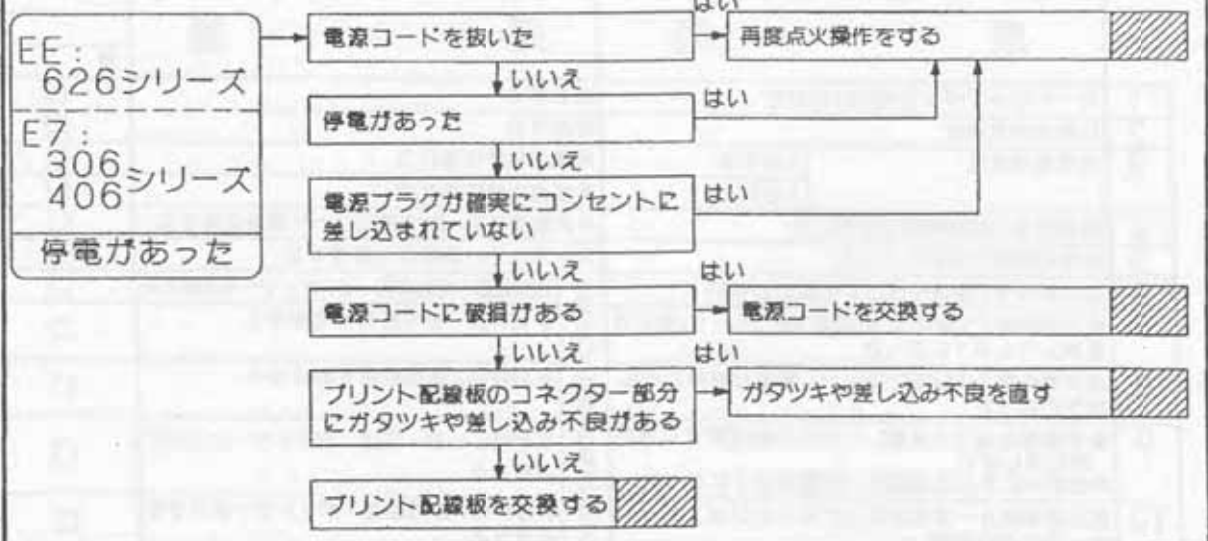 はい
EE:
626シリーズ
E7:
306
406
シリーズ
停電があった
電源コードを抜いた
再度点火操作をする
いいえ
停電があった
はい
いいえ
電源プラグが確実にコンセントに
差し込まれていない
はい
いいえ
はい
電源コードに破損がある
電源コードを交換する
いいえ
はい
プリント配線板のコネクター部分
にガタツキや差し込み不良がある
ガタツキや差し込み不良を直す
いいえ
プリント配線板を交換する